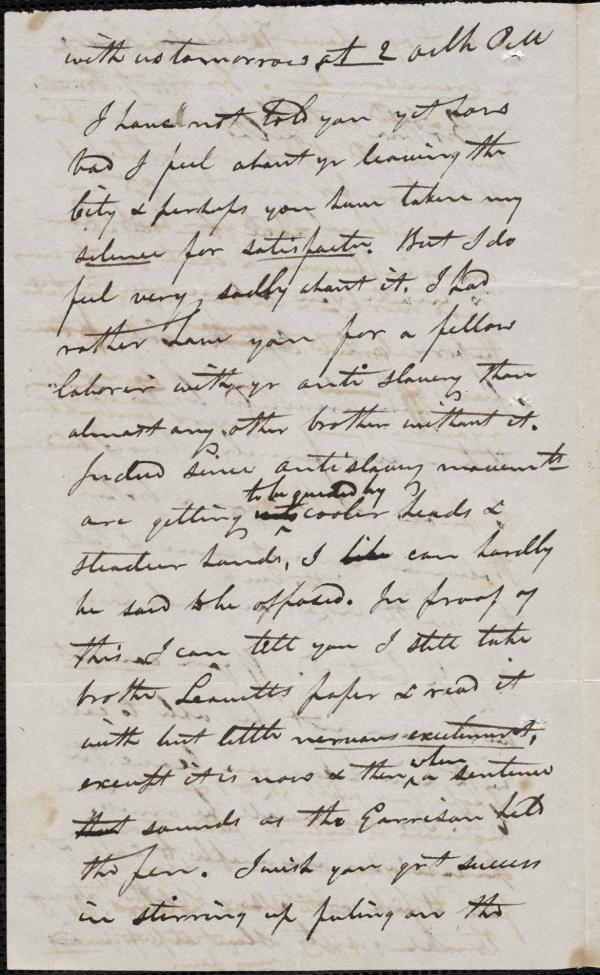 with us tomorrow at 2 oclk P.M
I have not told you yet how
bad I feel about yr leaving the
City & perhaps you have taken my
silence for satisfactn. But I do
feel very sadly about it. I had
rather have you for a fellow
laborer with yr anti slavery than
almost any other brother without it.
Indeed since antislavery movemts
are getting to be guided by cooler heads &
steadier hands, I can hardly
be said to be opposed. In proof of
this I can tell you I still take
brother Leavitts paper & read it
with but little nervous excitement,
except it is now & then when a sentence
sounds as tho Garrison held
the pen. I wish you grt success
in stirring up feeling on the